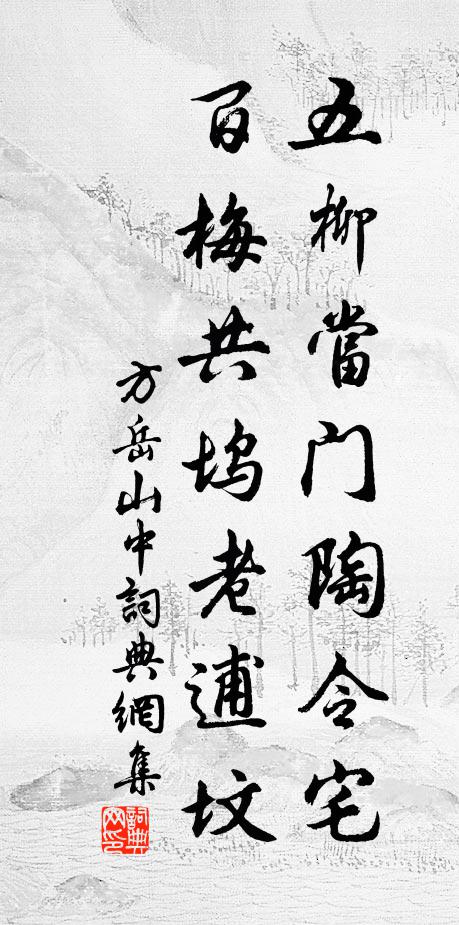 五柳當門陶令宅
百梅共塢老逋墳
方岳山中詞典網集
詞典網印